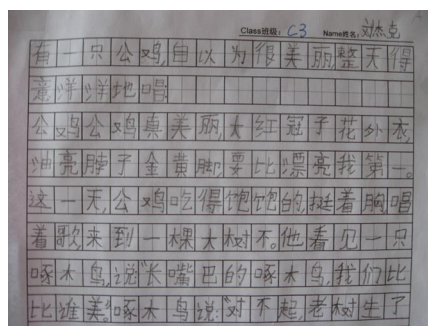 Class班级: C3 Name姓名: 刘杰克
有一只公鸡,自以为很美丽整天得
意洋洋地唱
公鸡公鸡真美丽,大红冠子花外衣,
油亮脖子金黄脚,要比漂亮我第一。
这一天,公鸡吃得饱饱的,挺着胸唱
着歌,来到一棵大树不。他看见一只
啄木鸟,说"长嘴巴的啄木鸟,我们比
比谁美。"啄木鸟说:"对不起,老树生了